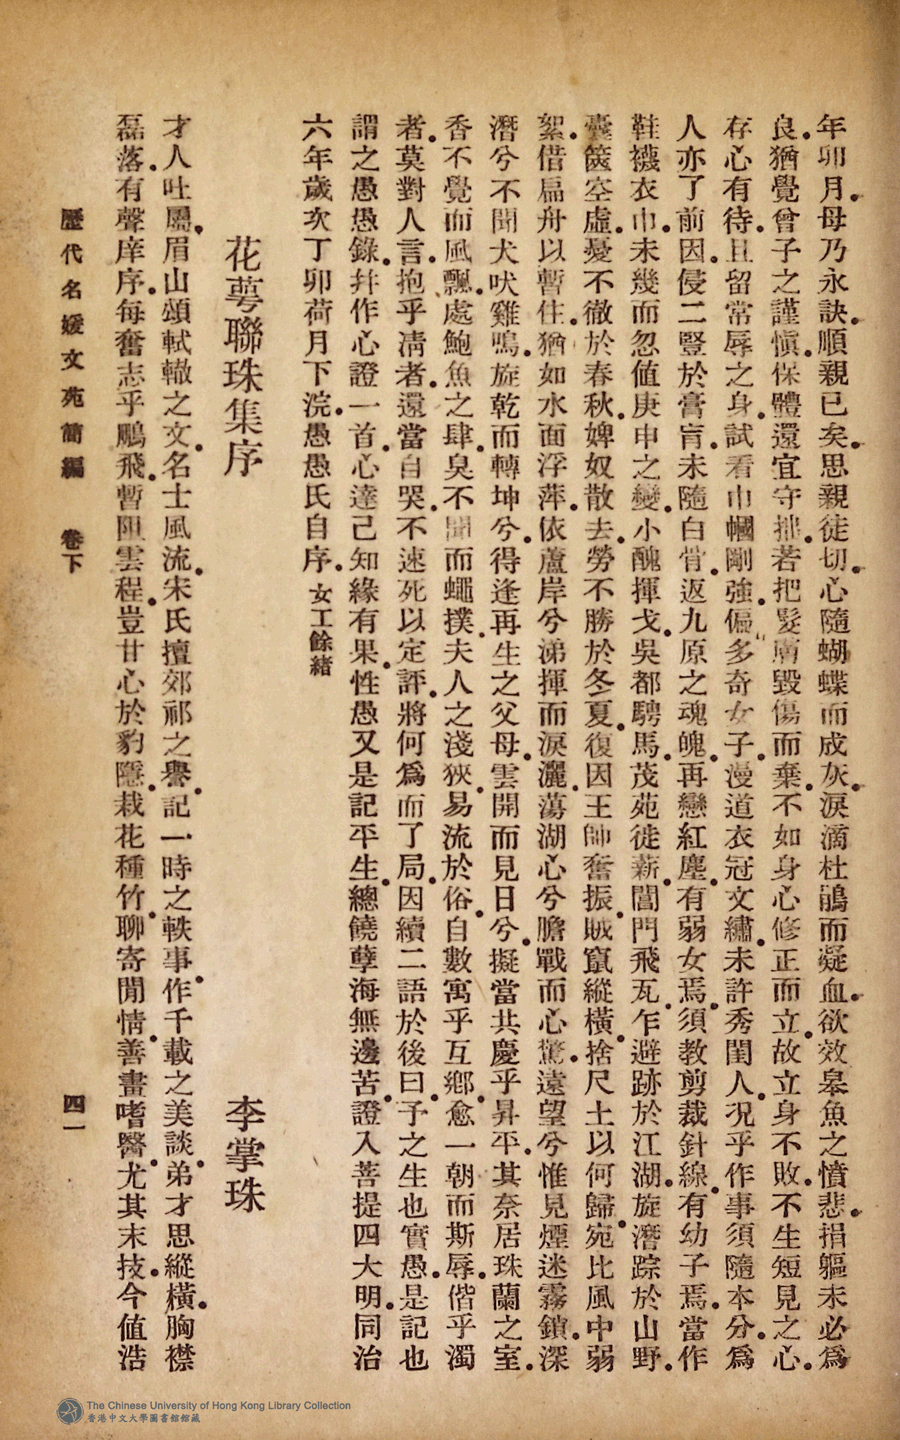 年卯月。母乃永訣。順親已矣。思親徒切。心隨蝴蝶而成灰。淚滴杜鵑而凝血。欲效皋魚之憤悲。捐軀未必爲
良。猶覺曾子之謹愼。保體還宜守拙。若把髮膚毀傷而棄。不如身心修正而立。故立身不敗。不生短見之心。
存心有待。且留常辱之身。試看巾幗剛強。偏多奇女子。漫道衣冠文繡。未許秀閨人。況乎作事須隨本分。爲
人亦了前因。侵二豎於膏肓。未隨白骨。返九原之魂魄。再戀紅塵。有弱女焉。須教剪裁針線。有幼子焉。當作
鞋襪衣巾。未幾而忽値庚申之變。小醜揮戈。吳都騁馬。茂苑徙薪。閶門飛瓦。乍避跡於江湖。旋潛踪於山野。
囊篋空虛。憂不徹於春秋。婢奴散去。勞不勝於冬夏。復因王師奮振。賊竄縱橫。捨尺土以何歸。宛比風中弱
絮。借扁舟以暫住。猶如水面浮萍。依蘆岸兮涕揮而淚灑。蕩湖心兮膽戰而心驚。遠望兮惟見煙迷霧鎖。深
潛兮不聞犬吠雞鳴。旋乾而轉坤兮。得逢再生之父母。雲開而見日兮。擬當共慶乎昇平。其奈居珠蘭之室。
香不覺而風飄。處鮑魚之肆。臭不聞而蠅撲。夫人之淺狹。易流於俗。自數寓乎互鄉。愈一朝而斯辱。偕乎濁
者。莫對人言。抱乎淸者。還當自哭。不速死以定評。將何爲而了局。因續二語於後曰。予之生也實愚。是記也
謂之愚愚錄。幷作心證一首。心達己知緣有果。性愚又是記平生。總饒孽海無邊苦。證入菩提四大明。同治
六年歲次丁卯荷月下浣。愚愚氏自序。女工餘緒
花萼聯珠集序 李掌珠
才人吐屬。眉山頌軾轍之文。名士風流。宋氏擅郊祁之譽。記一時之軼事。作千載之美談。弟才思縱橫。胸襟
磊落。有聲庠序。每奮志乎鵬飛。暫阻雲程。豈甘心於豹隱。栽花種竹。聊寄閒情。善畫嗜醫。尤其末技。今值浩
歷代名媛文苑簡編 卷下 四一
The Chinese University of Hong Kong Library Collection
香港中文大學圖書館館藏